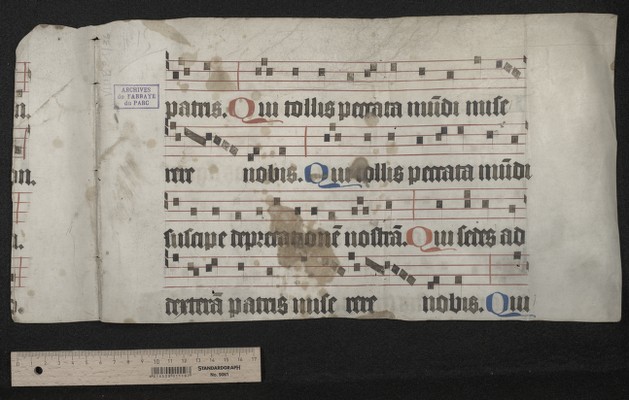 ARCHIVES
de l'ABBAYE
du PARC
patris. Qui tollis peccata mũdi mise
n.
rere nobis. Qui tollis peccata mũdi
m.
suscipe deprecationẽ nostrã. Qui sedes ad
n.
dexterã patris mise rere nobis. Qui
STANDARDGRAPH
No. 5001